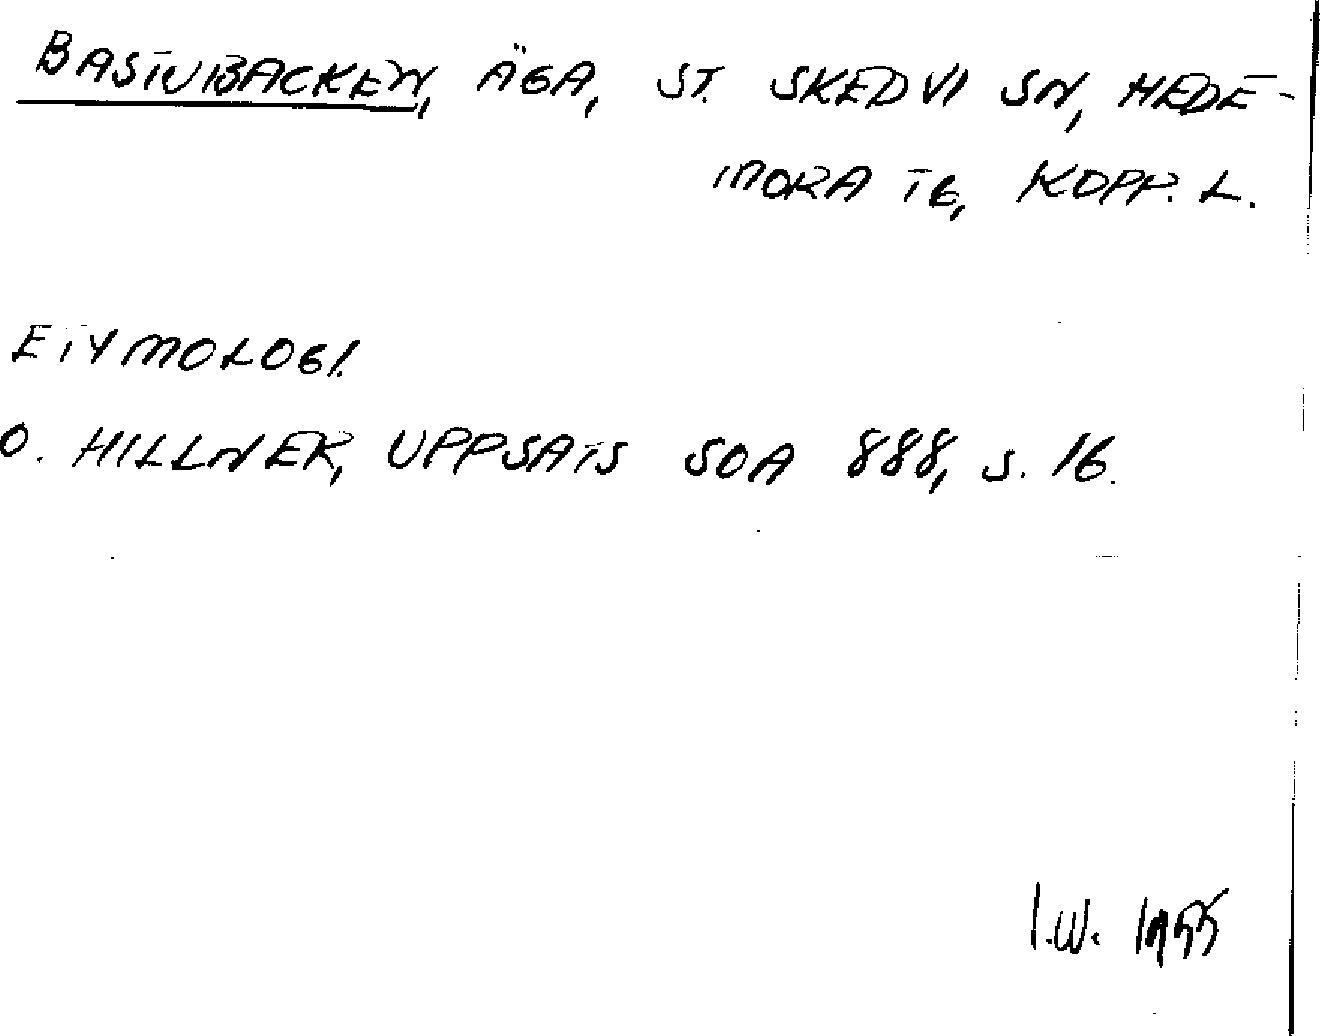 BASTUBACKEN, ÄGA, ST. SKEDVI SN, HEDE-
MORA TG, KOPP. L.
ETYMOLOGI.
O. HILLNER, UPPSATS SOA 888, S. 16.
I.W. 1955